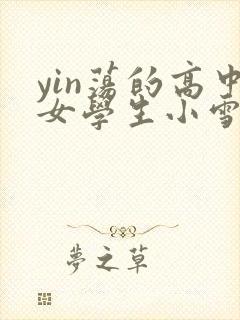 yin蕩的高中
女學生小雪
夢之草